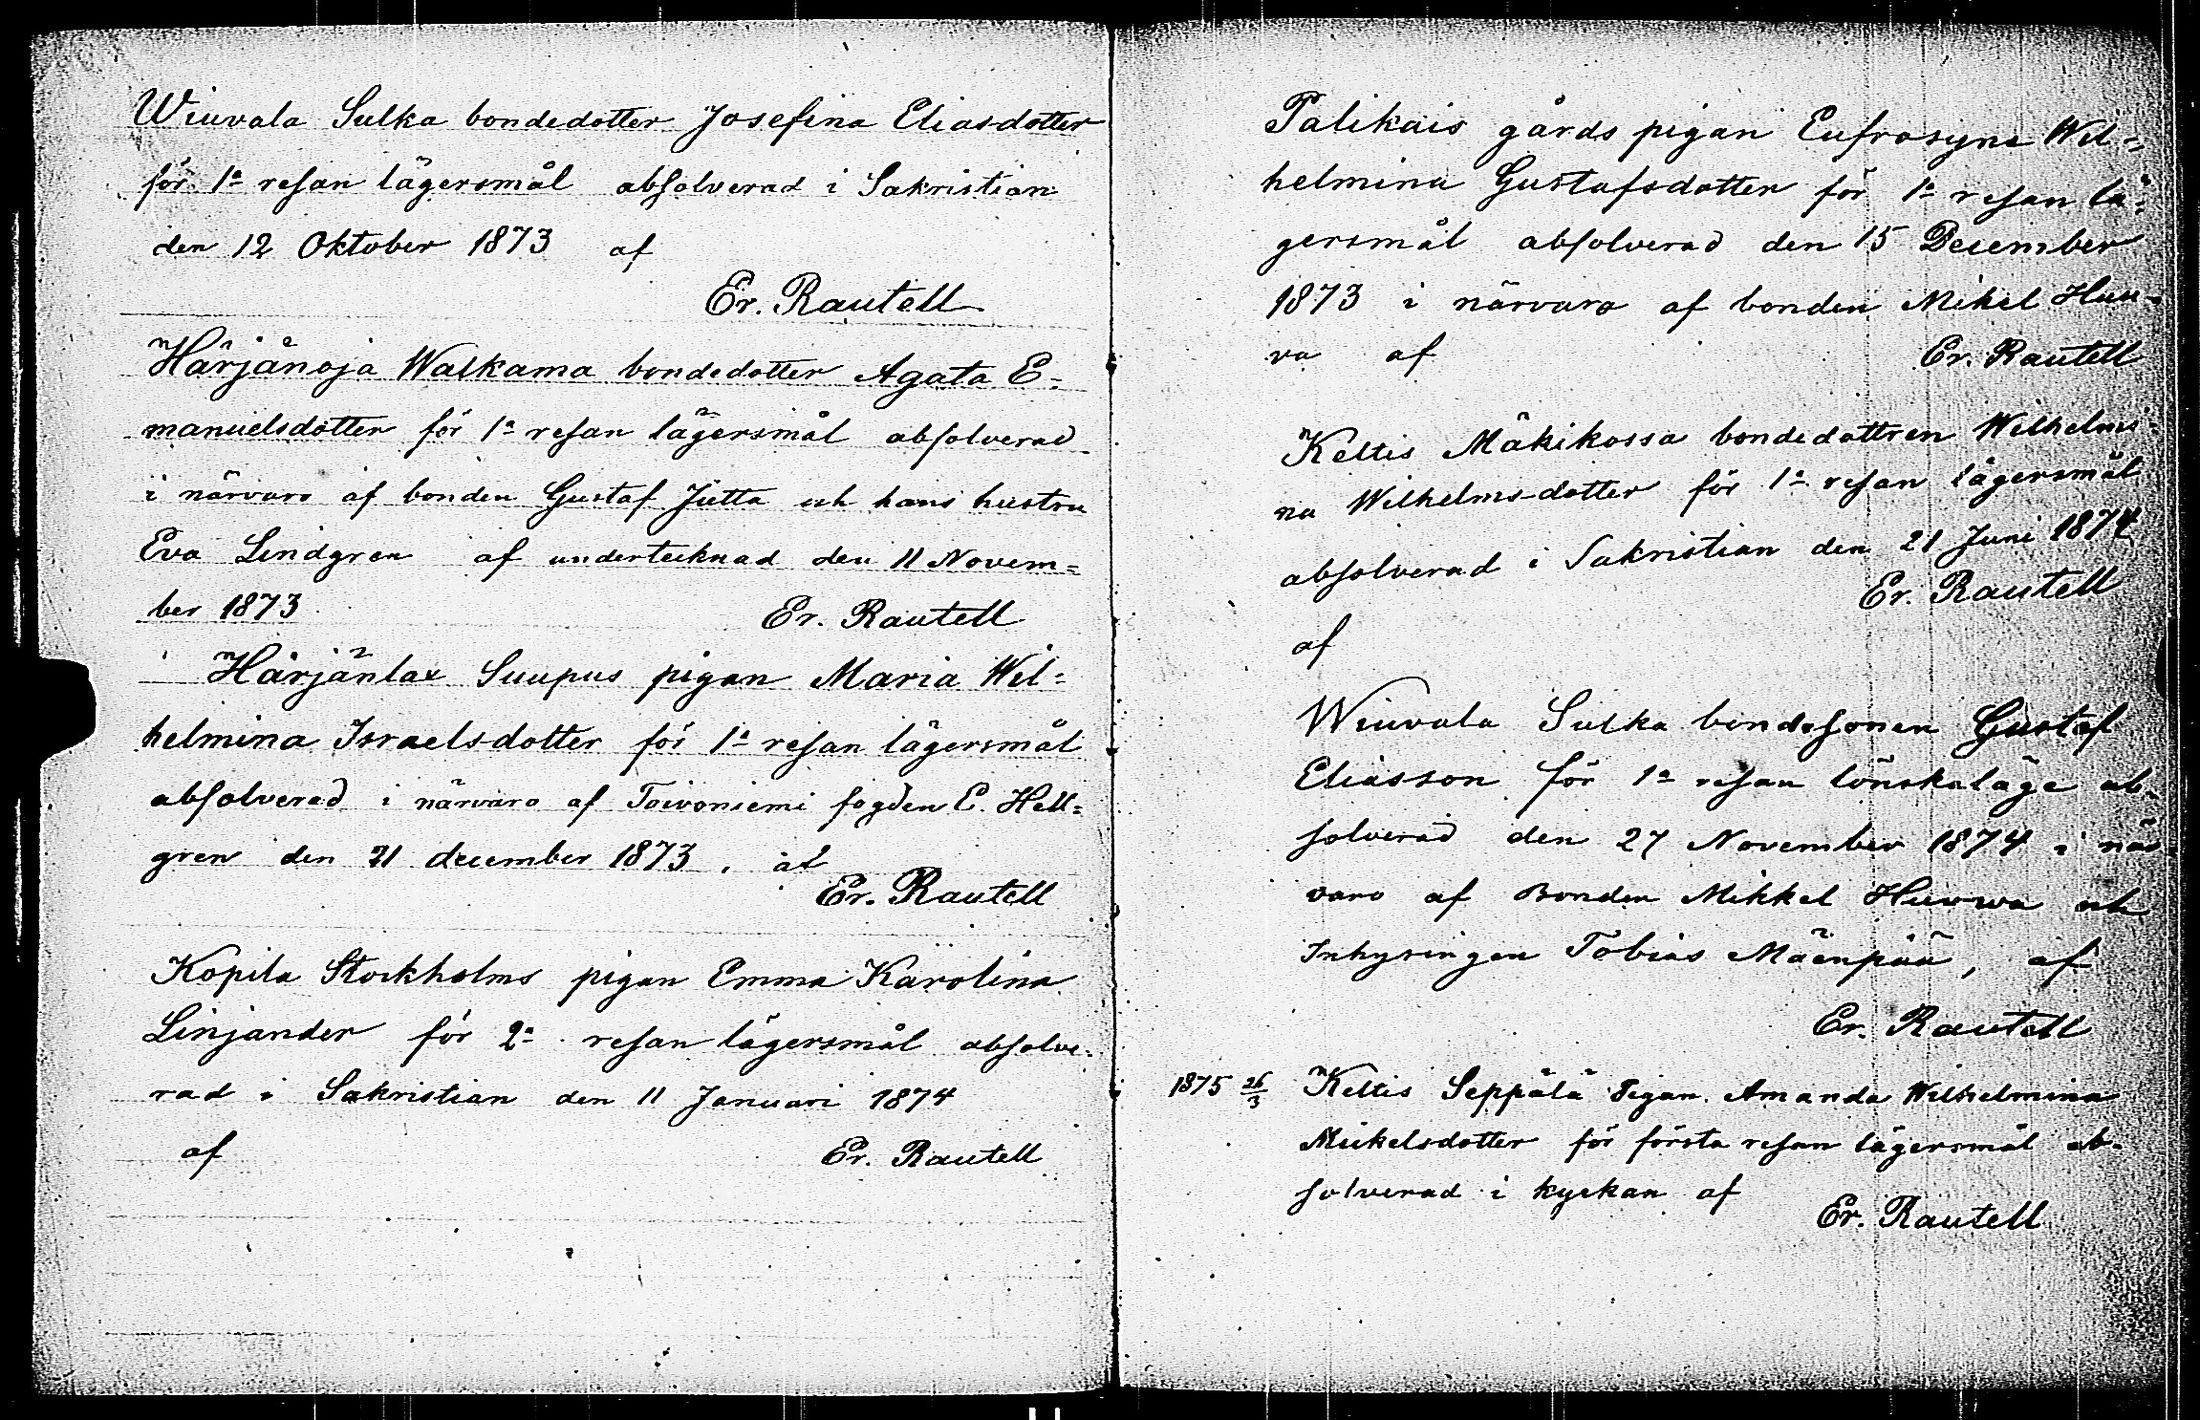 Wiuvala Sulka bondedotter Josefina Eliasdotter
för 1a resan lägersmål absolverad i Sakristian
den 12 Oktober 1873 af
Er. Rautell
Härjänoja Walkama bondedotter Agata E=
manuelsdotter för 1a resan lägersmål absolverad
i närvaro af bonden Gustaf Jutta och hans hustru
Eva Lindgren af undertecknad den 11 Novem=
ber 1873 Er. Rautell
Härjänlax Suupus pigan Maria Wil=
helmina Israelsdotter för 1a resan lägersmål
absolverad i närvaro af Toivoniemi fogden E. Hell=
gren den 21 december 1873. af
Er. Rautell
Kopila Stockholms pigan Emma Karolina
Linjander för 2a resan lägersmål absolve=
rad i Sakristian den 11 Januari 1874
af Er. Rautell
Palikais gårds pigan Eufrosyne Wil=
helmina Gustafsdotter för 1a resan lä=
gersmål absolverad den 15 December
1873 i närvaro af bonden Mikel Huu=
va af Er. Rautell
Keltis Mäkikossa bondedottren Wilhelmi=
na Wilhelmsdotter för 1a resan lägersmål
absolverad i Sakristian den 21 Juni 1874
Er. Rautell
af
Wiuvala Sulka bondesonen Gustaf
Eliasson för 1a resan lönskaläge ab=
solverad den 27 November 1874 i när=
varo af Bonden Mikkel Huuwa och
Inhysingen Tobias Mäenpää, af
Er. Rautell
1875 26/3 Keltis Seppälä Pigan Amanda Wilhelmina
Mickelsdotter för första resan lägersmål ab=
solverad i kyrkan af
Er. Rautell